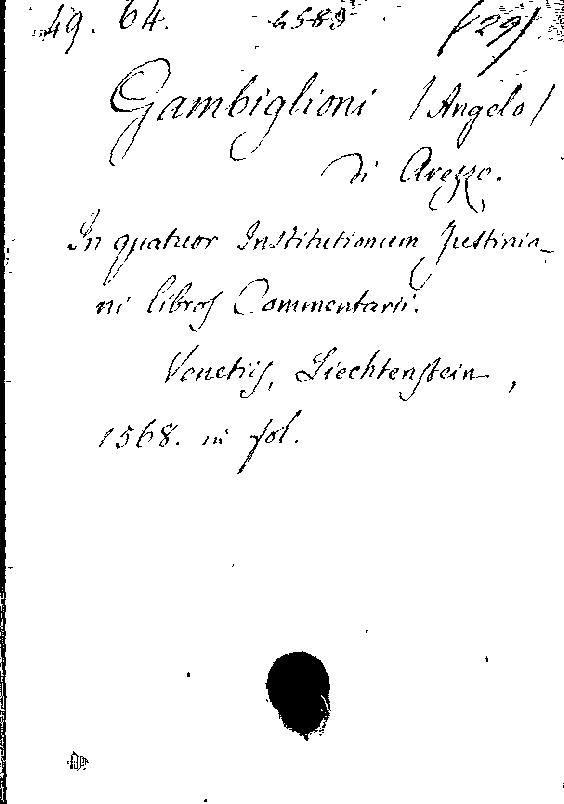 49. 64. 2583 /29/
Gambiglioni /Angelo/
di Arezzo.
In quatuor Institutionum Justinia-
ni libros Commentarii.
Venetiis, Liechtenstein,
1568. in fol.